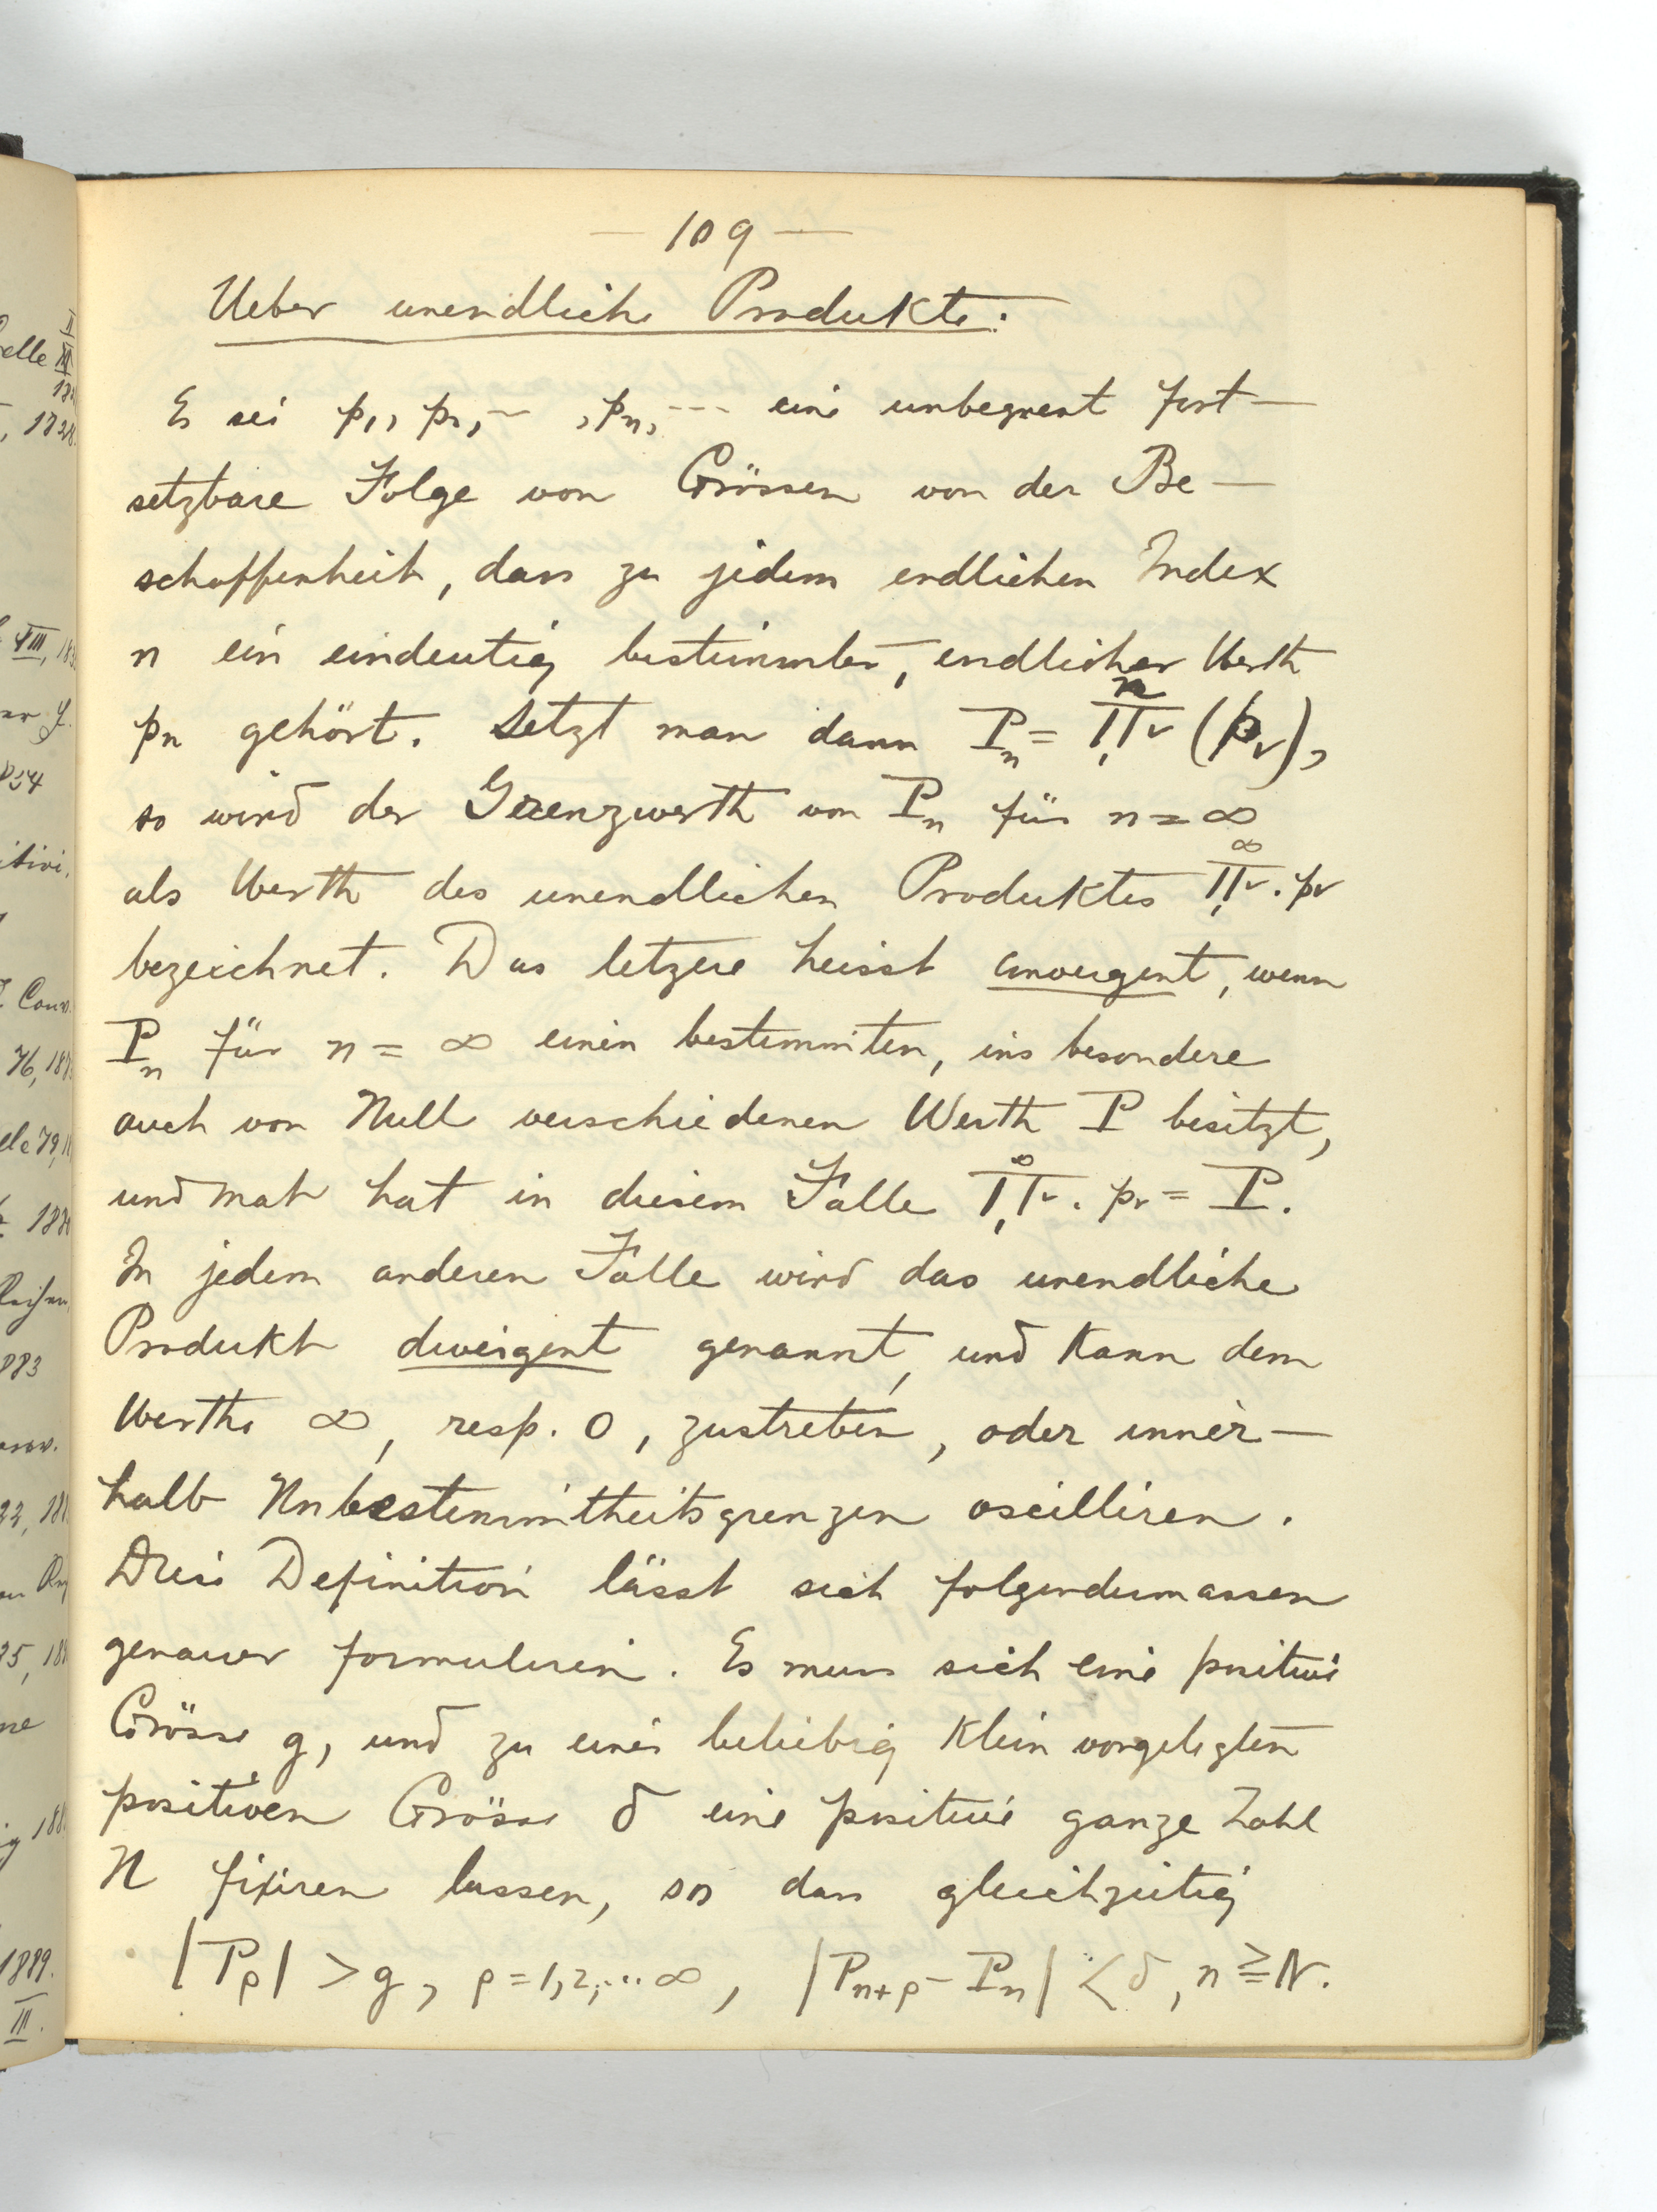 — 109 —
Ueber unendliche Produkte.
Es sei p₁, p₂, --- , pₙ, --- eine unbegrenzt fort-
setzbare Folge von Grössen von der Be-
schaffenheit, dass zu jedem endlichen Index
n ein eindeutig bestimmter, endlicher Werth
pₙ gehört. Setzt man dann Pₙ = ∏₁ⁿᵥ (pᵥ),
so wird der Grenzwerth von Pₙ für n = ∞
als Werth des unendlichen Produktes ∏₁^∞ᵥ . pᵥ
bezeichnet. Das letzere heisst convergent, wenn
Pₙ für n = ∞ einen bestimmten, ins besondere
auch von Null verschiedenen Werth P besitzt,
und man hat in diesem Falle ∏₁^∞ᵥ . pᵥ = P.
In jedem anderen Falle wird das unendliche
Produkt divergent genannt, und kann dem
Werthe ∞, resp. 0, zustreben, oder inner-
halb Unbestimmtheitsgrenzen oscilliren.
Diese Definition lässt sich folgendermassen
genauer formuliren. Es muss sich eine positive
Grösse g, und zu einer beliebig klein vorgelegten
positiven Grösse δ eine positive ganze Zahl
N fixiren lassen, so dass gleichzeitig
|Pᵨ| > g, ρ = 1, 2, ... ∞, |Pₙ₊ᵨ - Pₙ| < δ, n ≧ N.
elle
, 1828
VIII, 18
76, 18
1883
1889.
III.